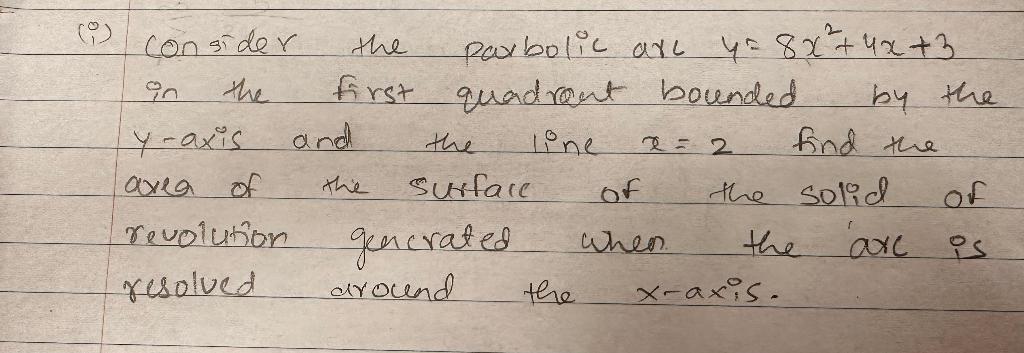 (i) consider the parbolic arc y = 8x²+4x+3
in the first quadrant bounded by the
y-axis and the line x = 2 find the
area of the surface of the solid of
revolution generated when the arc is
resolved around the x-axis.